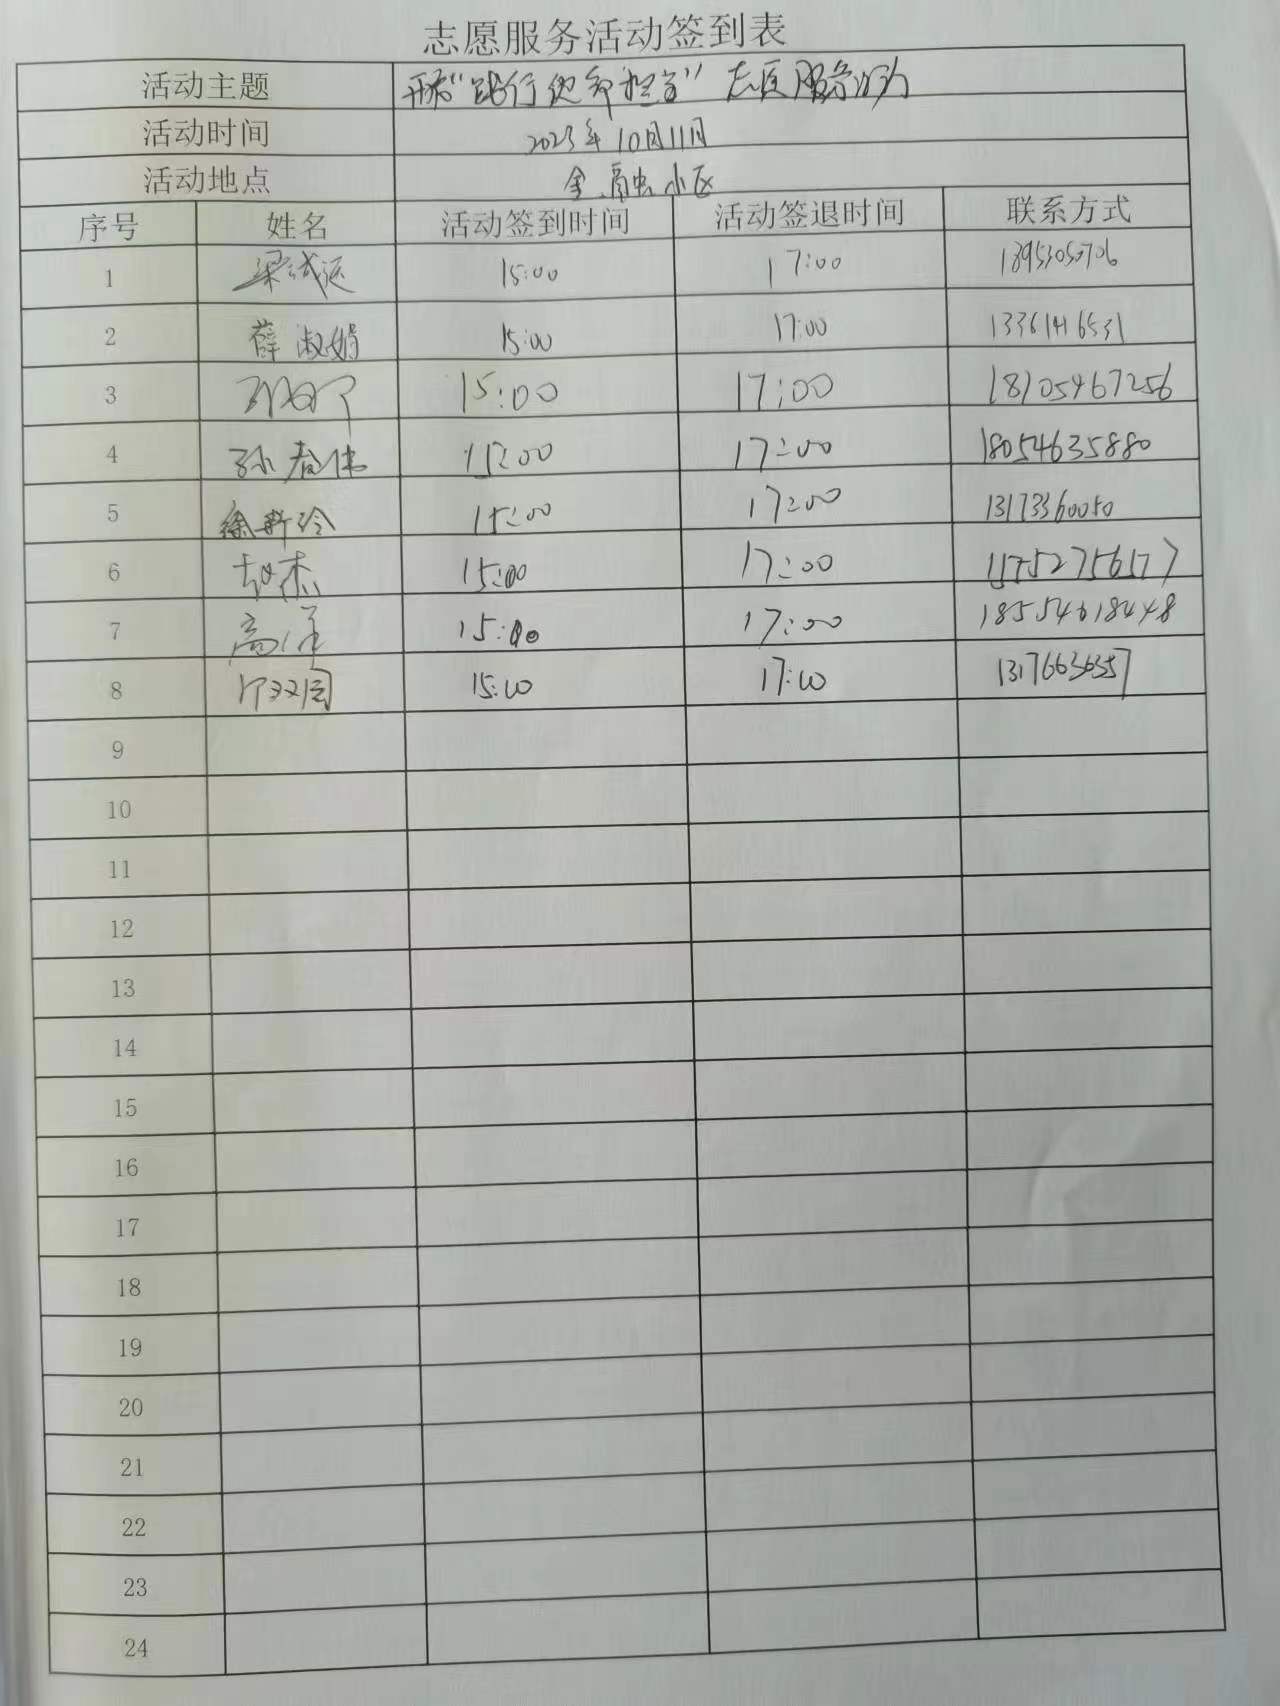 志愿服务活动签到表
活动主题 开展"践行使命担当"志愿服务活动
活动时间 2023年10月11日
活动地点 金融小区
序号 姓名 活动签到时间 活动签退时间 联系方式
1 梁试运 15:00 17:00 18953050706
2 薛淑娟 15:00 17:00 13361416531
3 15:00 17:00 18105467256
4 孙春伟 15:00 17:00 18054635880
5 徐新玲 15:00 17:00 13173360050
6 赵杰 15:00 17:00
7 高洋 15:00 17:00 18554618448
8 15:00 17:00 13176636357
9
10
11
12
13
14
15
16
17
18
19
20
21
22
23
24